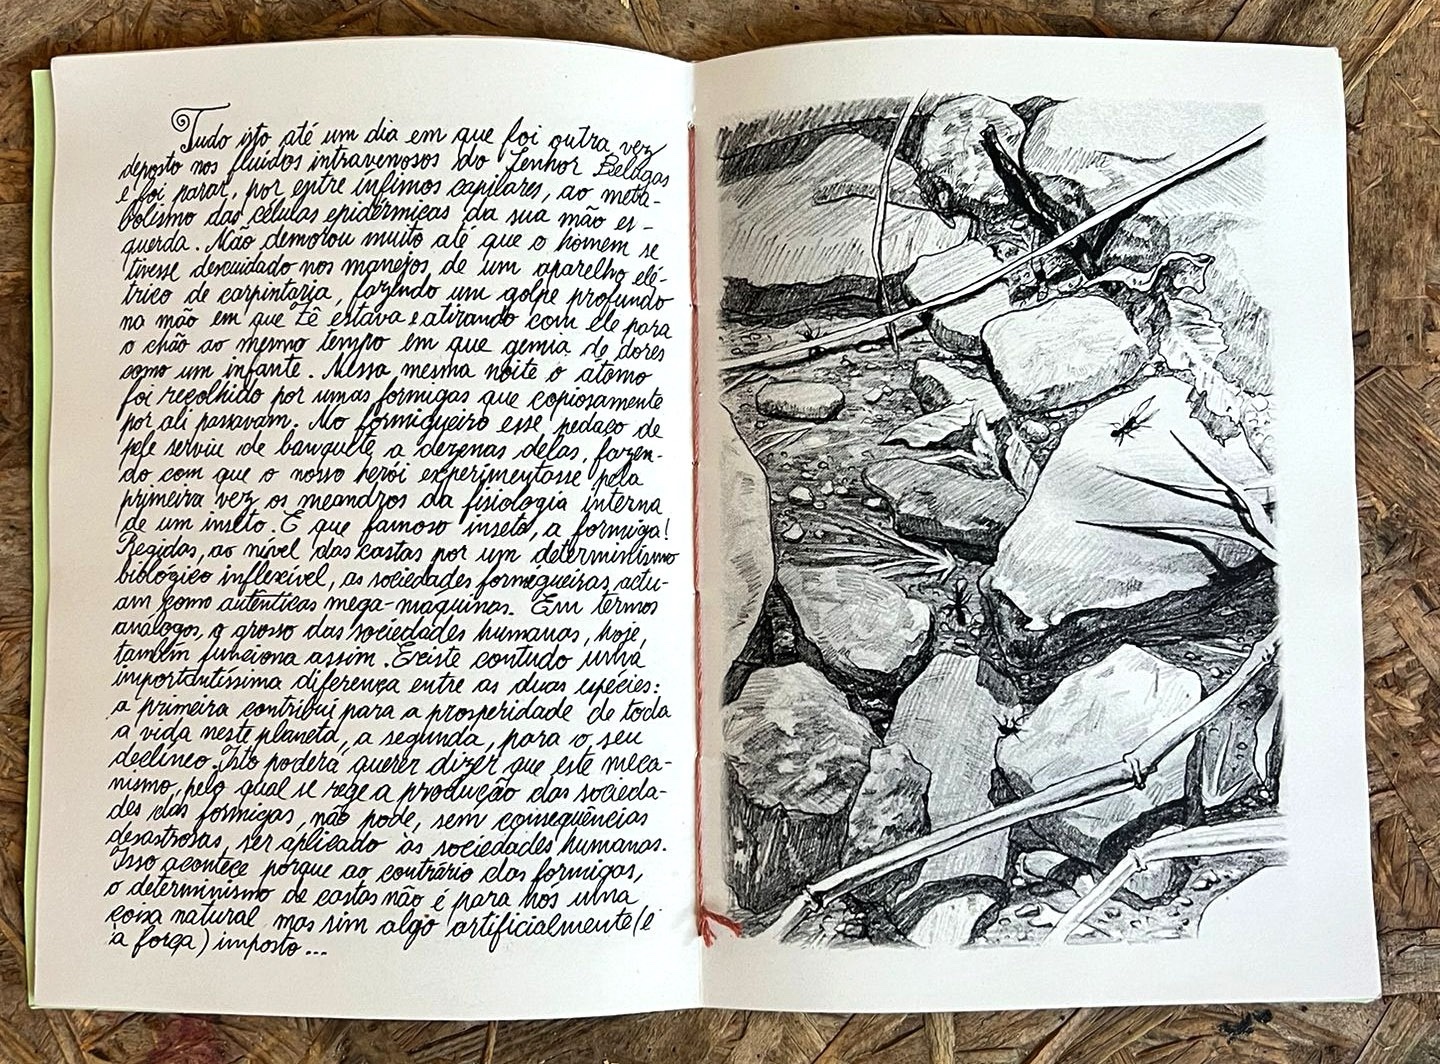 Tudo isto até um dia em que foi outra vez
deposto nos fluidos intravenosos do Senhor Belugas
e foi parar, por entre ínfimos capilares, ao meta-
bolismo das células epidérmicas da sua mão es-
querda. Não demorou muito até que o homem se
tivesse descuidado nos manejos de um aparelho elé-
trico de carpintaria, fazendo um golpe profundo
na mão em que Zê estava e atirando com ele para
o chão ao mesmo tempo em que gemia de dores
como um infante. Nessa mesma noite o átomo
foi recolhido por umas formigas que copiosamente
por ali passavam. No formigueiro esse pedaço de
pele serviu de banquete a dezenas delas, fazen-
do com que o nosso herói experimentasse pela
primeira vez os meandros da fisiologia interna
de um inseto. E que famoso inseto, a formiga!
Regidas, ao nível das castas por um determinismo
biológico inflexível, as sociedades formigueiras actu-
am como autênticas mega-maquinas. Em termos
análogos, o grosso das sociedades humanas, hoje,
também funciona assim. Existe contudo uma
importantíssima diferença entre as duas espécies:
a primeira contribui para a prosperidade de toda
a vida neste planeta, a segunda, para o seu
declíneo. Isto poderá querer dizer que este meca-
nismo, pelo qual se rege a produção das socieda-
des das formigas, não pode, sem consequências
desastrosas, ser aplicado às sociedades humanas.
Isso acontece porque ao contrário das formigas,
o determinismo de castas não é para nós uma
coisa natural mas sim algo artificialmente (e
à força) imposto...